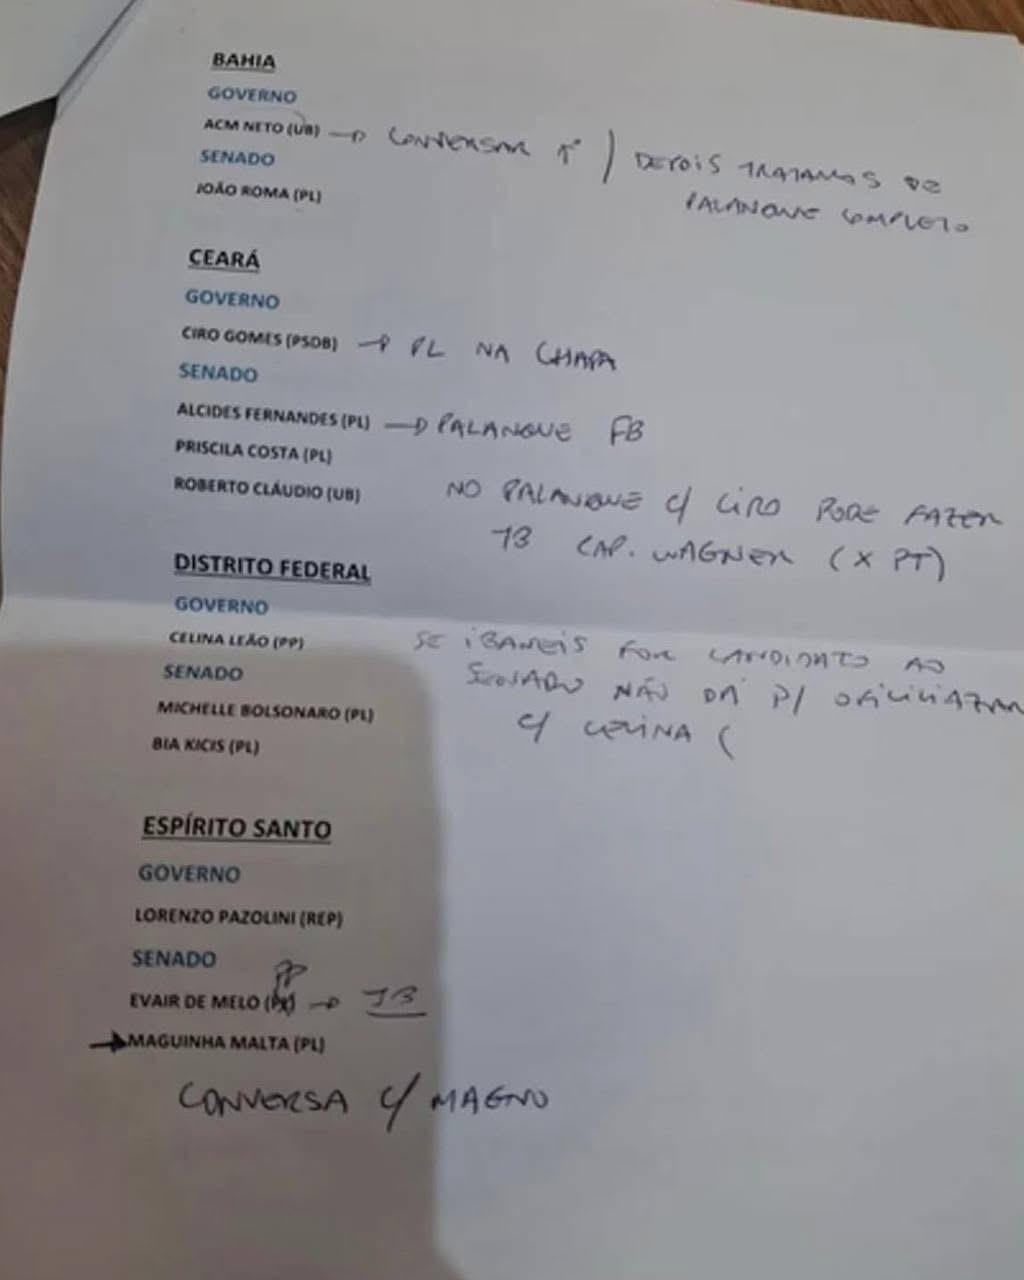 BAHIA
GOVERNO
ACM NETO (UB) → CONVERSAR 1º / DEPOIS TRATAMOS DE
PALANQUE COMPLETO
SENADO
JOÃO ROMA (PL)
CEARÁ
GOVERNO
CIRO GOMES (PSDB) → PL NA CHAPA
SENADO
ALCIDES FERNANDES (PL) → PALANQUE FB
PRISCILA COSTA (PL)
ROBERTO CLÁUDIO (UB) NO PALANQUE C/ CIRO PODE FAZER
TB CAP. WAGNER (X PT)
DISTRITO FEDERAL
GOVERNO
CELINA LEÃO (PP) SE IBANEIS FOR CANDIDATO AO
SENADO NÃO DÁ P/ OFICIALIZAR
C/ CELINA (
SENADO
MICHELLE BOLSONARO (PL)
BIA KICIS (PL)
ESPÍRITO SANTO
GOVERNO
LORENZO PAZOLINI (REP)
SENADO
PP
EVAIR DE MELO → JB
→ MAGUINHA MALTA (PL)
CONVERSA C/ MAGNO